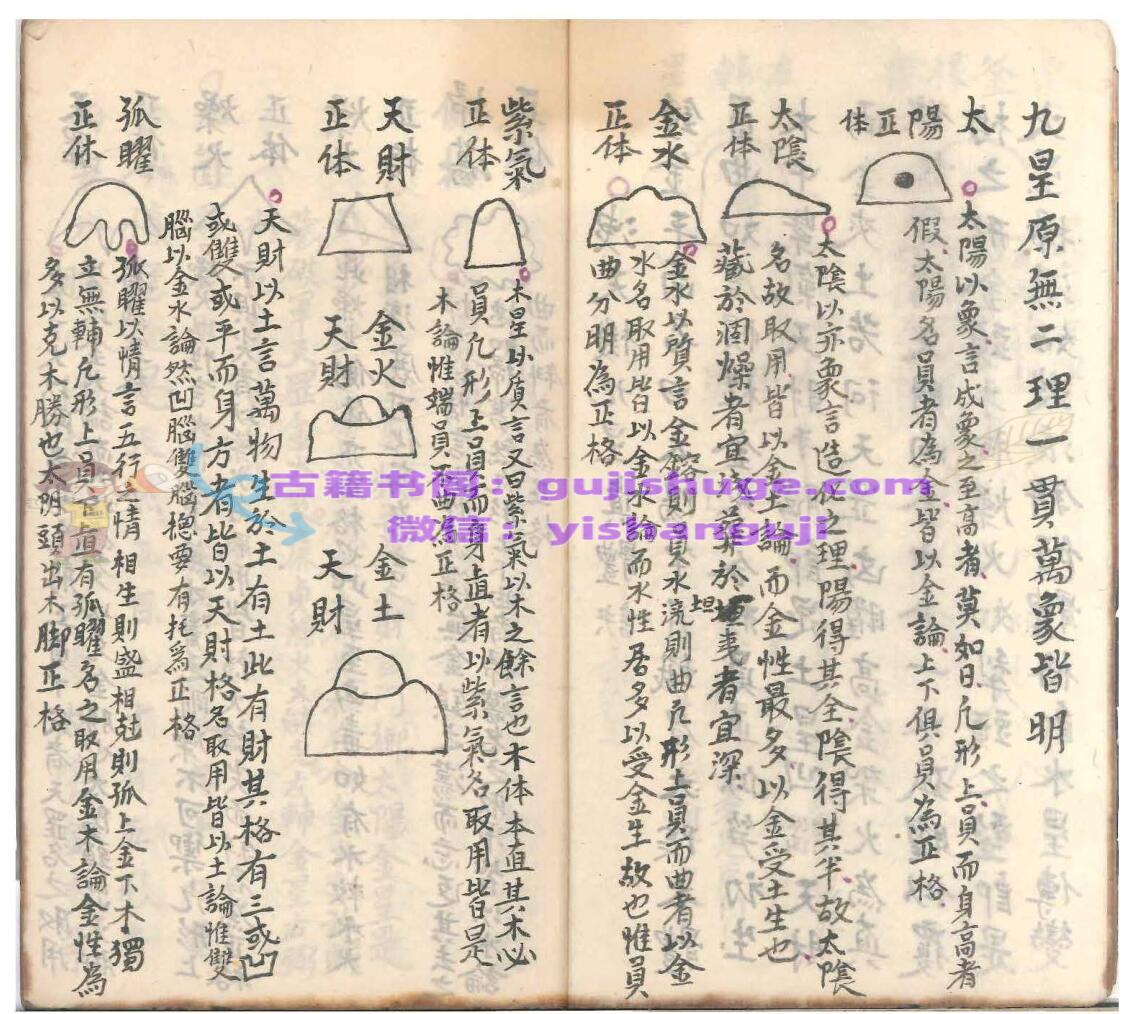 九星原無二理一貫萬象皆明
太陽正体
太陽以象言成象之至高者莫如日凡形上員而身高者
假太陽名員者為金皆以金論上下俱員為正格
太陰正体
太陰以亦象言造化之理陽得其全陰得其半故太陰
名故取用皆以金土論而金性最多以金受土生也
藏於涸燥者宜淺葬於坦夷者宜深
金水正体
金水以質言金鎔則員水流則曲凡形上員而曲者以金
水名取用皆以金水論而水性居多以受金生故也惟員
曲分明為正格
紫氣正体
木星以质言又曰紫氣以木之餘言也木体本直其木必
員凡形上員而身直者以紫氣名取用皆是
木論惟端員不曲為正格
天財正体
金火天財
金土天財
天財以土言萬物生於土有土此有財其格有三或凹
或雙或平而身方者皆以天財格名取用皆以土論惟雙
腦以金水論然凹腦雙腦揔要有托為正格
孤曜正休
孤曜以情言五行之情相生則盛相尅則孤上金下木獨
立無輔凡形上員直有孤曜名之取用金木論金性為
多以克木勝也太阴頭出木脚正格
古籍书阁：gujishuge.com
微信：yishanguji